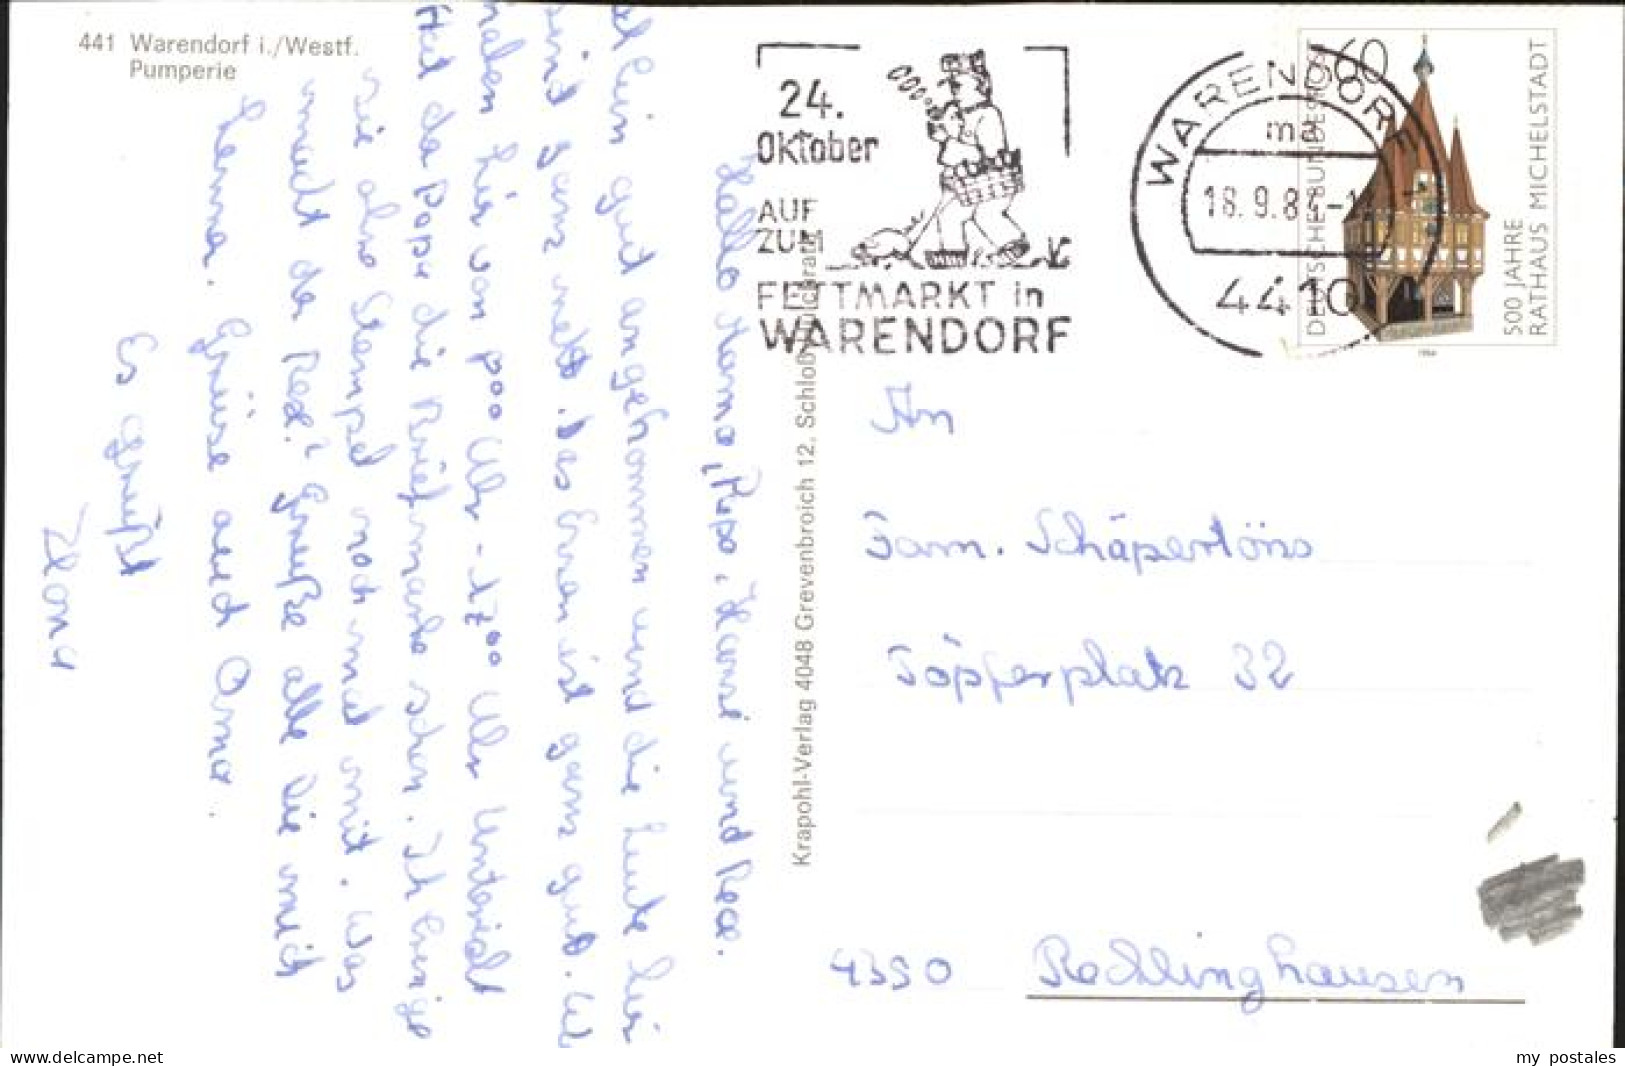 441 Warendorf i./Westf.
Pumperie
Hallo Mama, Papa, Hansi und Rex.
gut angekommen und die Leute hier
sint ganz nett. Das Essen ist ganz gut. Wi
haben hir von 8⁰⁰ Uhr - 17⁰⁰ Uhr Unterricht
Hat da Papa die Briefmarke schon. Ich bringe
sie ohne Stempel noch mal mit. Was
macht der Rex? Grüße alle die mich
kenna. Grüße auch Oma.
Es grüßt
Ilona
Krapohl-Verlag 4048 Grevenbroich 12, Schloß
24.
Oktober
AUF
ZUM
FETTMARKT in
WARENDORF
WARENDORF
ma
18.9.8
4410
60
DEUTSCHE BUNDESPOST
500 JAHRE
RATHAUS MICHELSTADT
1984
An
Fam. Schäpertöns
Töpferplatz 32
4350 Recklinghausen
www.delcampe.net
my postales